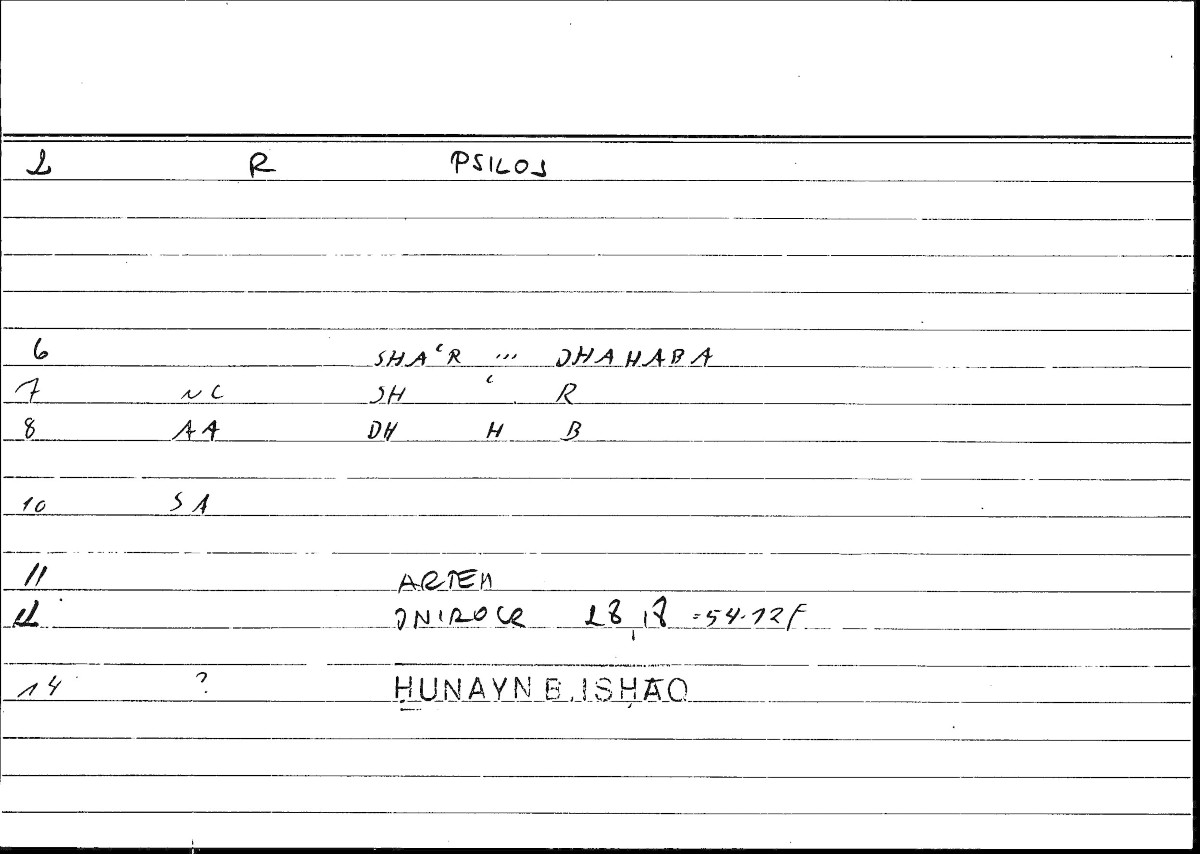 2 R PSILOS
6 SHAʿR ... DHAHABA
7 NC SH ʿ R
8 AA DH H B
10 SA
11 ARTEM
12 ONIROCR 28,18 =54.12f
14 ? ḤUNAYN B. ISḤĀQ